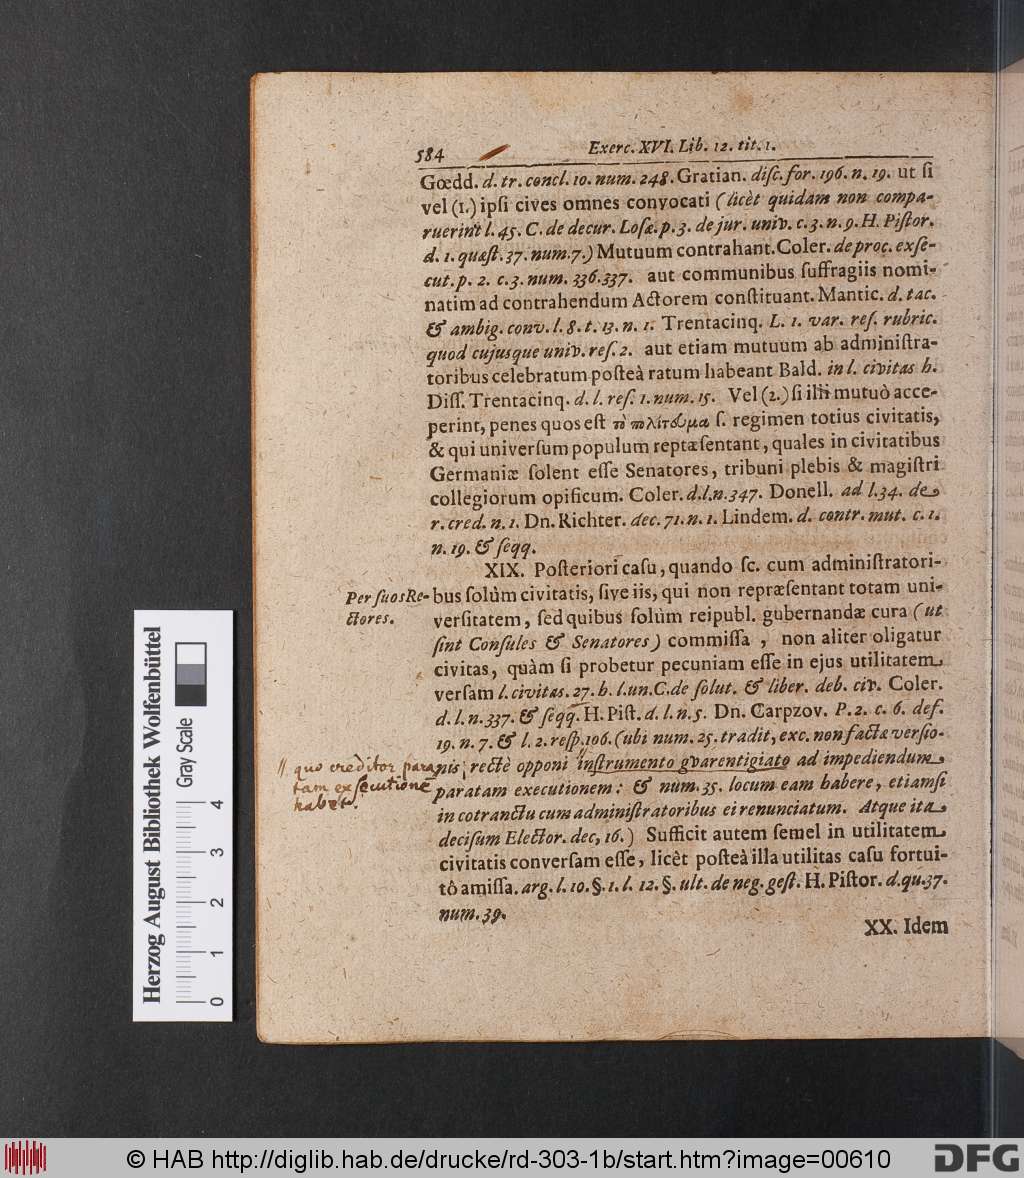 584
Exerc. XVI. Lib. 12. tit. 1.
Gœdd. d. tr. concl. 10. num. 248. Gratian. diſc. for. 196. n. 19. ut ſi
vel (1.) ipſi cives omnes convocati (licèt quidam non compa-
ruerint l. 45. C. de decur. Loſæ. p. 3. de jur. univ. c. 3. n. 9. H. Piſtor.
d. 1. quæſt. 37. num. 7.) Mutuum contrahant. Coler. de proc. exſe-
cut. p. 2. c. 3. num. 336. 337. aut communibus ſuffragiis nomi-
natim ad contrahendum Actorem conſtituant. Mantic. d. tac.
& ambig. conv. l. 8. t. 13. n. 1. Trentacinq. L. 1. var. reſ. rubric.
quod cujusque univ. reſ. 2. aut etiam mutuum ab adminiſtra-
toribus celebratum poſteà ratum habeant Bald. in l. civitas h.
Diſſ. Trentacinq. d. l. reſ. 1. num. 15. Vel (2.) ſi illi mutuò acce-
perint, penes quos eſt τὸ πολίτευμα ſ. regimen totius civitatis,
& qui universum populum reptæſentant, quales in civitatibus
Germaniæ ſolent eſſe Senatores, tribuni plebis & magiſtri
collegiorum opificum. Coler. d. l. n. 347. Donell. ad l. 34. de
r. cred. n. 1. Dn. Richter. dec. 71. n. 1. Lindem. d. contr. mut. c. 1.
n. 19. & ſeqq.
XIX. Poſteriori caſu, quando ſc. cum adminiſtratori-
Per ſuos Re-
ctores.
bus ſolùm civitatis, ſive iis, qui non repræſentant totam uni-
verſitatem, ſed quibus ſolùm reipubl. gubernandæ cura (ut
ſint Conſules & Senatores) commiſſa , non aliter oligatur
civitas, quàm ſi probetur pecuniam eſſe in ejus utilitatem
verſam l. civitas. 27. h. l. un. C. de ſolut. & liber. deb. civ. Coler.
d. l. n. 337. & ſeqq. H. Piſt. d. l. n. 5. Dn. Carpzov. P. 2. c. 6. def.
19. n. 7. & l. 2. reſp. 106. (ubi num. 25. tradit, exc. non factæ verſio-
// quo creditor para
tam exſecutionē
habet.
nis, rectè opponi inſtrumento gvarentigiato ad impediendum
paratam executionem: & num. 35. locum eam habere, etiamſi
in cotranctu cum adminiſtratoribus ei renunciatum. Atque ita
deciſum Elector. dec, 16.) Sufficit autem ſemel in utilitatem
civitatis converſam eſſe, licèt poſteà illa utilitas caſu fortui-
tò amiſſa. arg. l. 10. §. 1. l. 12. §. ult. de neg. geſt. H. Piſtor. d. qu. 37.
num. 39.
XX. Idem
Herzog August Bibliothek Wolfenbüttel
Gray Scale
0 1 2 3 4
© HAB http://diglib.hab.de/drucke/rd-303-1b/start.htm?image=00610
DFG